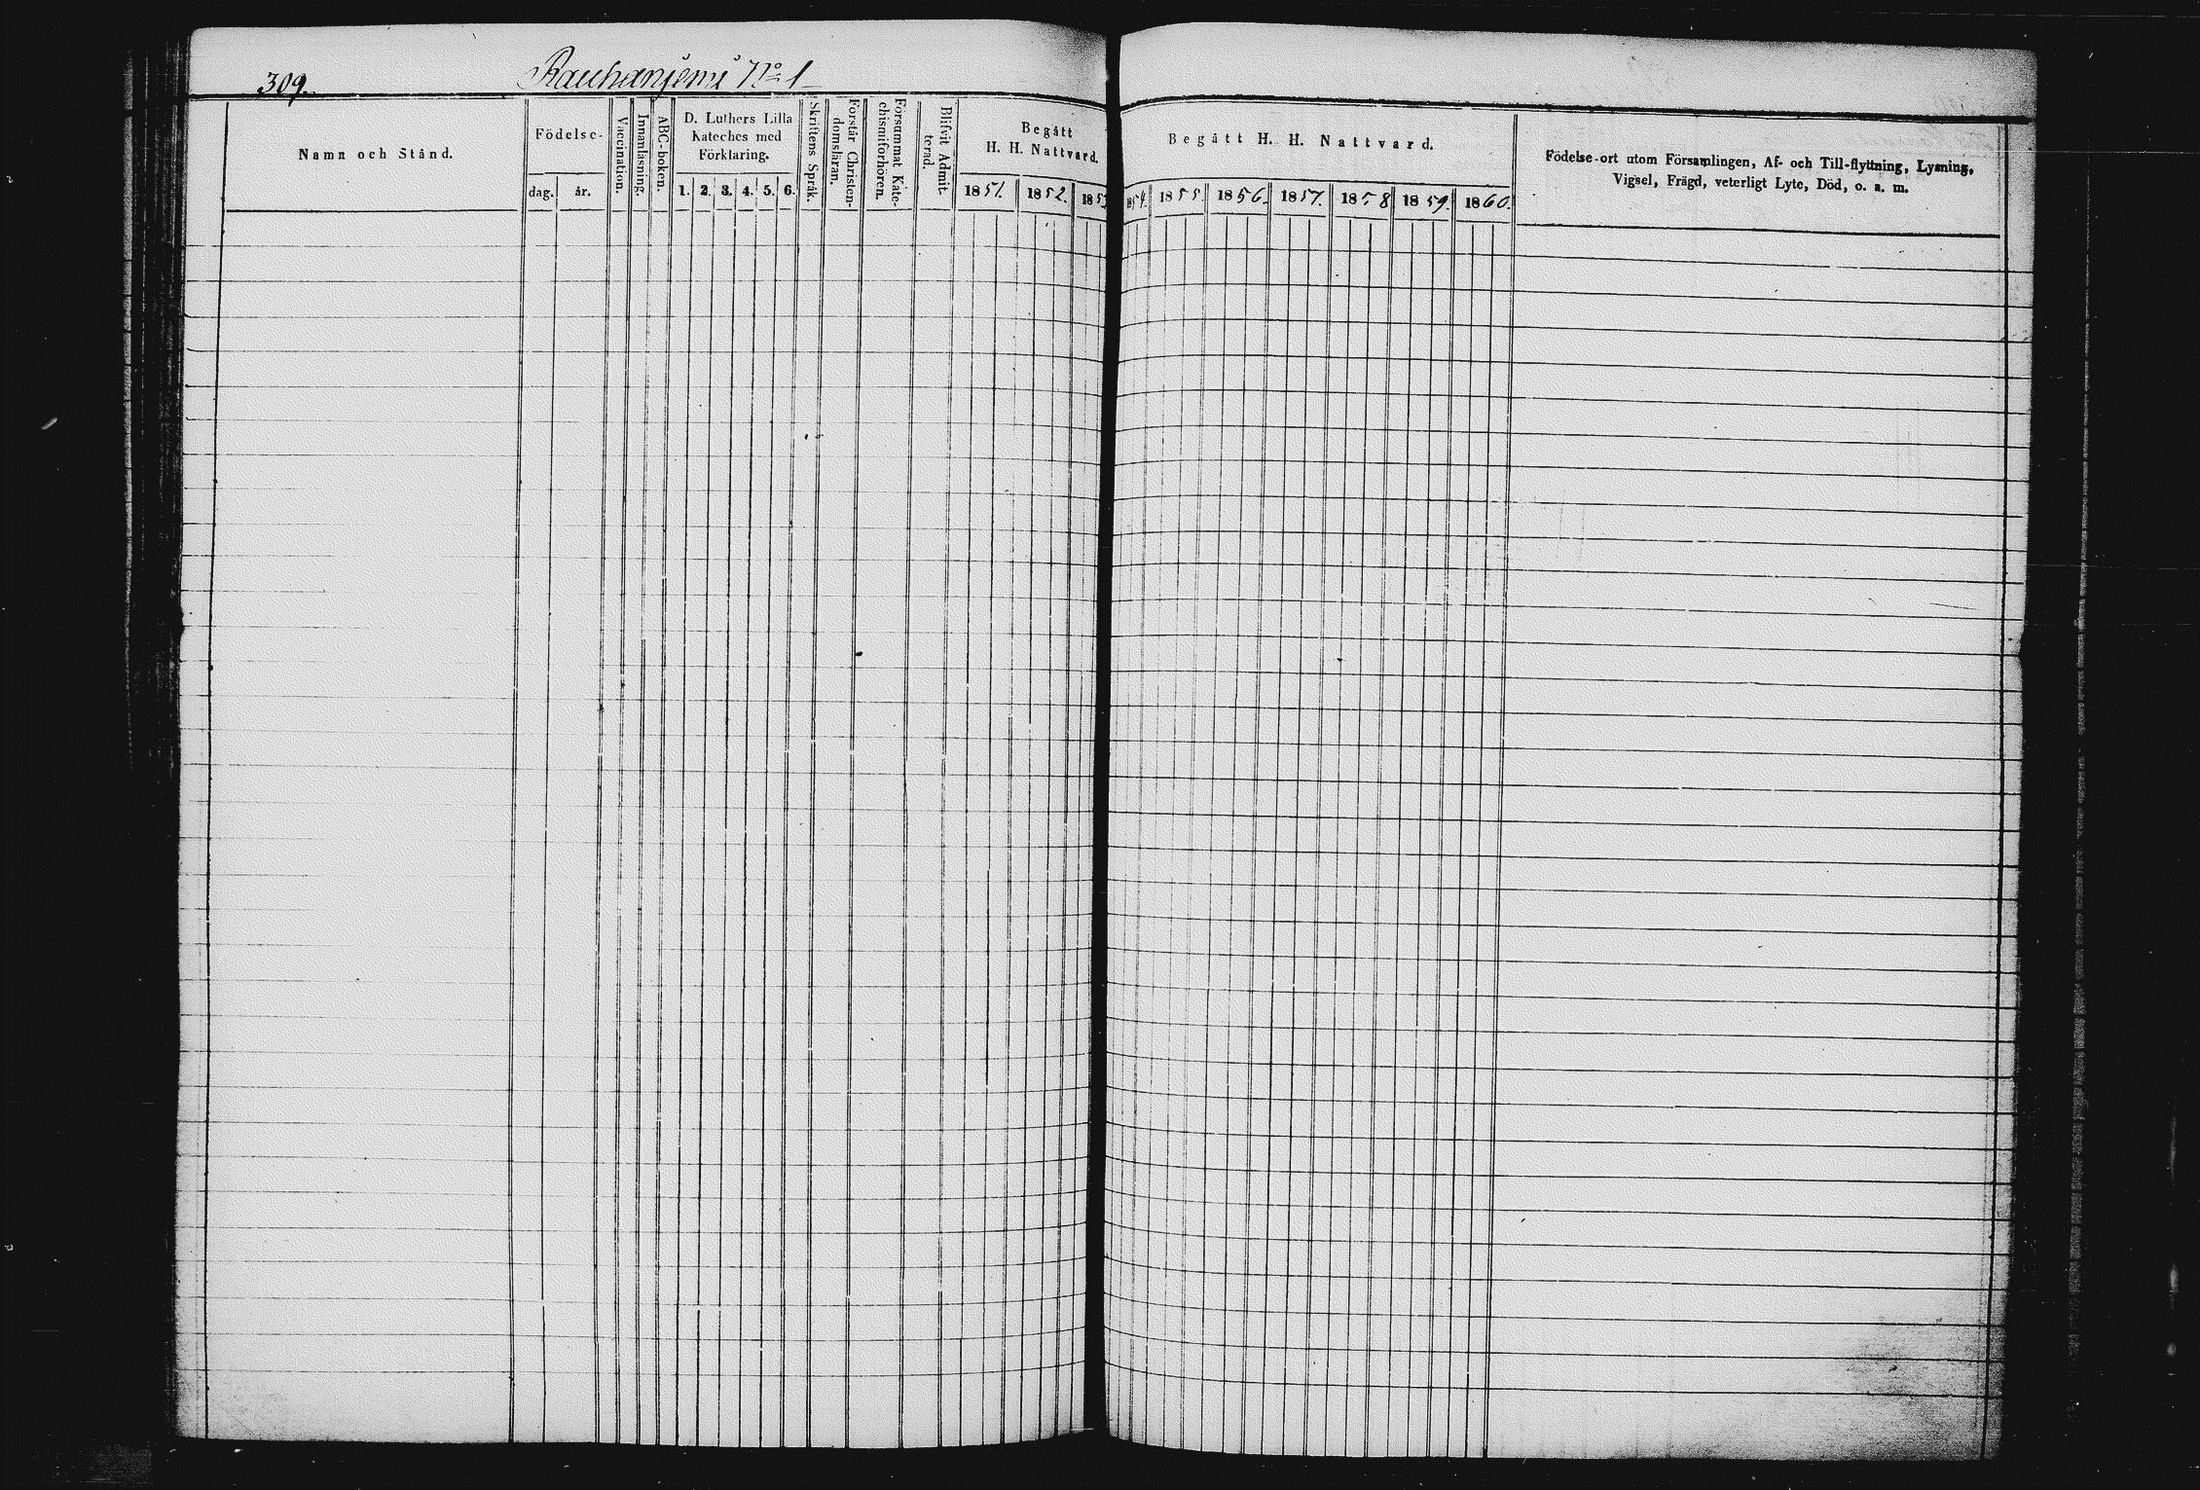 309.
Rauhanjemi No 1
Namn och Stånd.
Födelse-
dag. år.
Vaccination.
Innanläsning.
ABC-boken.
D. Luthers Lilla
Kateches med
Förklaring.
1. 2. 3. 4. 5. 6.
Skriftens Språk.
Förstår Christen-
domsläran.
Försummat Kate-
chismiförhören.
Blifvit Admit-
terad.
Begått
H. H. Nattvard.
1851. 1852. 1853
Begått H. H. Nattvard.
1854. 1855. 1856. 1857. 1858 1859. 1860.
Födelse-ort utom Församlingen, Af- och Till-flyttning, Lysning,
Vigsel, Frägd, veterligt Lyte, Död, o. a. m.